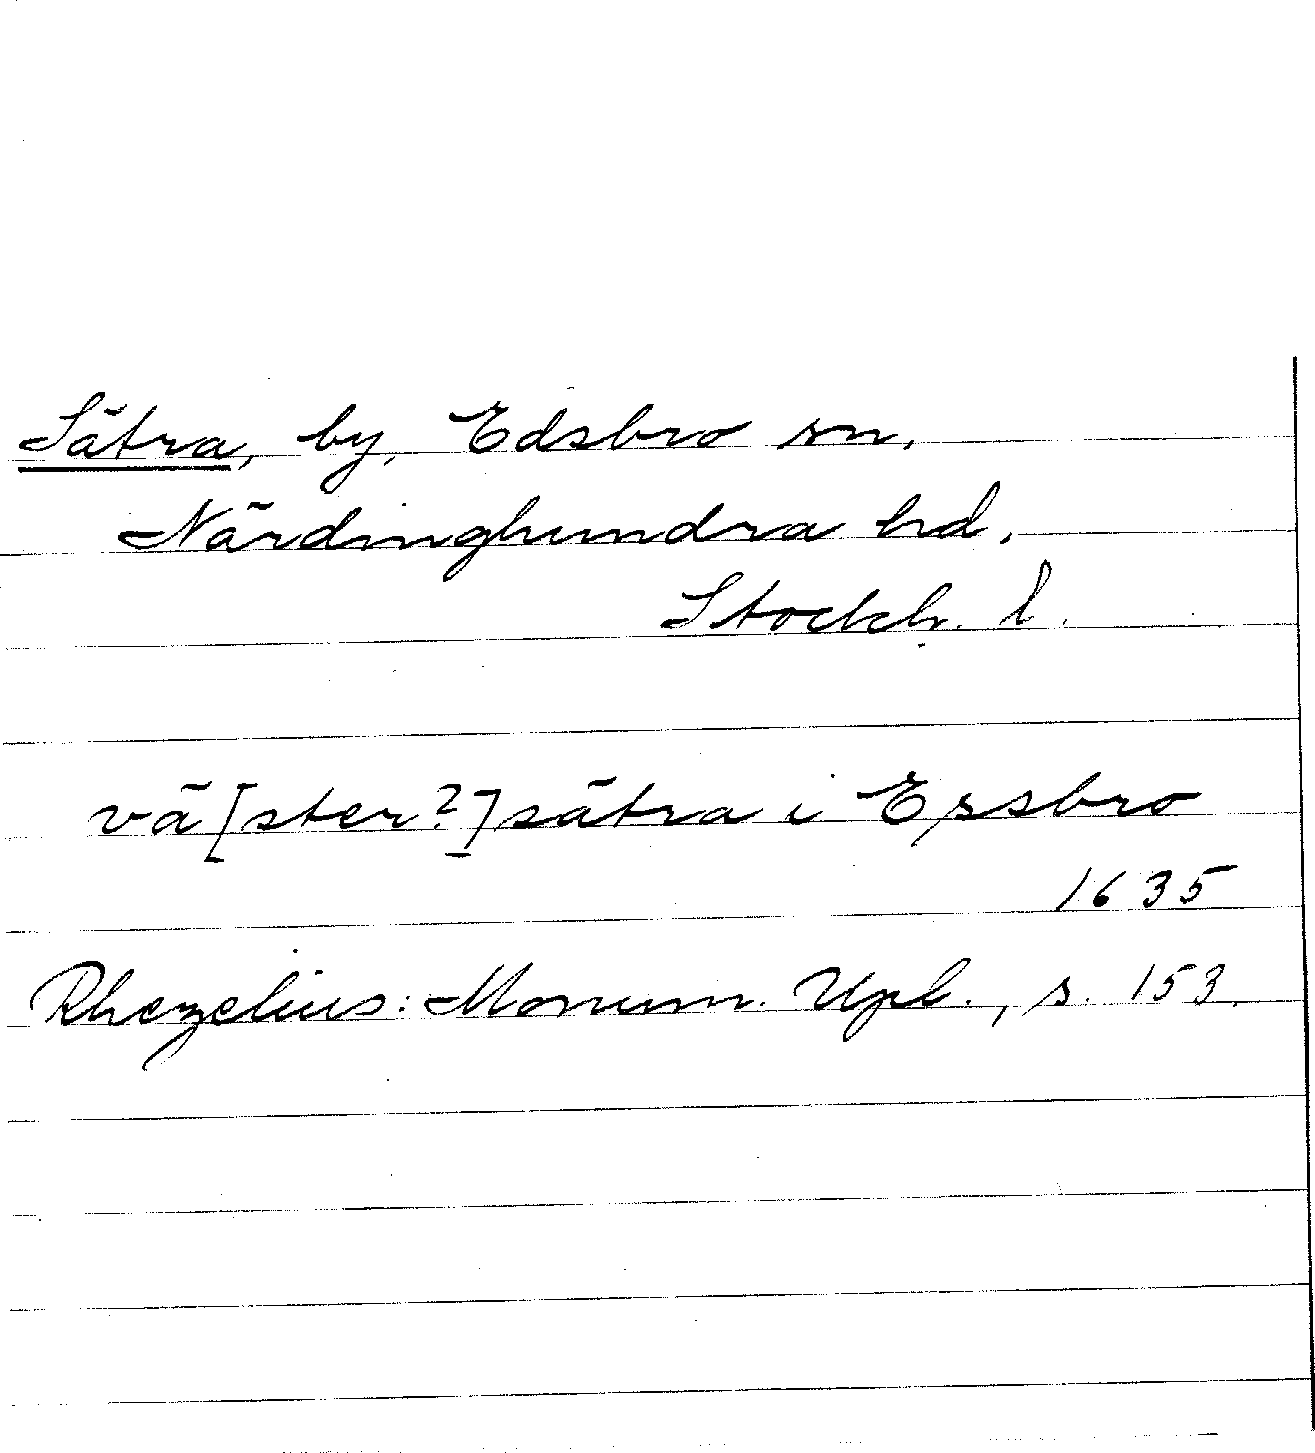 Sätra, by, Edsbro sn,
Närdinghundra hd,
Stockh. l.
vä[ster?]sätra i Essbro
1635
Rhezelius: Monum. Upl., s. 153.